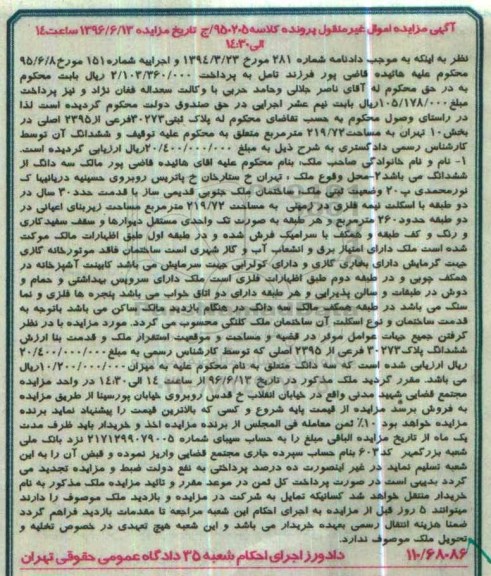 آگهی مزایده اموال غیرمنقول پرونده کلاسه ۹۵۰۲۰۵/ج تاریخ مزایده ۱۳۹۶/۶/۱۳ ساعت ۱۴
الی ۱۴:۳۰
نظر به اینکه به موجب دادنامه شماره ۲۸۱ مورخ ۱۳۹۴/۳/۲۳ و اجراییه شماره ۱۵۱ مورخ ۹۵/۶/۸
محکوم علیه هائیده قاضی پور فرزند تامل به پرداخت ۲/۱۰۳/۳۶۰/۰۰۰ ریال بابت محکوم
به در حق محکوم له آقای ناصر جلالی وحامد حربی با وکالت سعداله فغان نژاد و نیز پرداخت
مبلغ ۱۰۵/۱۷۸/۰۰۰ ریال بابت نیم عشر اجرایی در حق صندوق دولت محکوم گردیده است لذا
در راستای وصول محکوم به حسب تقاضای محکوم له پلاک ثبتی ۳۰۲۷۳ فرعی از ۲۳۹۵ اصلی در
بخش ۱۰ تهران به مساحت ۲۱۹/۷۲ مترمربع متعلق به محکوم علیه توقیف و ششدانگ آن توسط
کارشناس رسمی دادگستری به شرح ذیل به مبلغ ۲۰/۴۰۰/۰۰۰/۰۰۰ ریال ارزیابی گردیده است.
۱- نام و نام خانوادگی صاحب ملک: بنام محکوم علیه آقای هائیده قاضی پور مالک سه دانگ از
ششدانگ می باشد ۲- محل وقوع ملک ، تهران خ ستارخان خ پاتریس روبروی حسینیه دریانیها ک
نورمحمدی پ ۲۰ وضعیت ثبتی ملک: ساختمان ملک جنوبی قدیمی ساز با قدمت حدد ۳۰ سال در
دو طبقه با اسکلت نیمه فلزی در زمینی به مساحت ۲۱۹/۷۲ مترمربع مساحت زیربنای اعیانی در
دو طبقه حدود ۲۶۰ مترمربع و هر طبقه به صورت تک واحدی مستقل دیوارها و سقف سفید کاری
و رنگ و کف طبقه و همکف با سرامیک فرش شده و در طبقه اول طبق اظهارات مالک موکت
شده است ملک دارای امتیاز برق و انشعاب آب و گاز شهری است ساختمان فاقد موتورخانه گازی
جهت گرمایش دارای بخاری گازی و دارای کولرآبی جهت سرمایش می باشد کابینت آشپزخانه در
همکف چوبی و در طبقه دوم طبق اظهارات فلزی است ملک دارای سرویس بهداشتی و حمام و
دوش در طبقات و سالن پذیرایی و هر طبقه دارای دو اتاق خواب می باشد پنجره ها فلزی و نما
سنگ می باشد در طبقه همکف مالک سه دانگ در هنگام بازدید مالک ساکن می باشد باتوجه به
قدمت ساختمان و نوع اسکلت آن ساختمان ملک کلنگی محسوب می گردد. مورد مزایده با در نظر
گرفتن جمیع جهات عوامل موثر در قضیه و مساحت و موقعیت استقرار ملک و قدمت بنا ارزش
ششدانگ پلاک ۳۰۲۷۳ فرعی از ۲۳۹۵ اصلی که توسط کارشناس رسمی به مبلغ ۲۰/۴۰۰/۰۰۰/۰۰۰
ریال ارزیابی شده است که سه دانگ متعلق به نام محکوم علیه به میزان ۱۰/۲۰۰/۰۰۰/۰۰۰ ریال
می باشد. مقرر گردید ملک مذکور در تاریخ ۹۶/۶/۱۳ از ساعت ۱۴ الی ۱۴:۳۰ در واحد مزایده
مجتمع قضایی شهید مدنی واقع در خیابان انقلاب خ قدس روبروی خیابان پورسینا از طریق مزایده
به فروش برسد مزایده از قیمت پایه شروع و کسی که بالاترین قیمت را پیشنهاد نماید برنده
مزایده خواهد بود ۱۰٪ ثمن معامله فی المجلس از برنده مزایده اخذ و خریدار باید ظرف مدت
یک ماه از تاریخ مزایده الباقی مبلغ را به حساب سیبای شماره ۲۱۷۱۲۹۹۰۷۹۰۰۵ نزد بانک ملی
شعبه بزرگمهر کد ۶۰۳ بنام حساب سپرده جاری مجتمع قضایی واریز نموده و قبض آن را به این
شعبه تسلیم نماید در غیر اینصورت ده درصد پرداختی به نفع دولت ضبط و مزایده تجدید می
گردد بدیهی است در صورت پرداخت کل ثمن در موعد مقرر و تائید مزایده ملک مذکور به نام
خریدار منتقل خواهد شد کسانیکه تمایل به شرکت در مزایده و بازدید ملک موصوف را دارند
میتوانند ۵ روز قبل از مزایده به اجرای احکام این شعبه مراجعه تا مقدمات بازدید فراهم گردد
ضمنا هزینه انتقال رسمی بعهده خریدار می باشد و این شعبه هیچ تعهدی در خصوص تخلیه و
تحویل ملک موصوف ندارد.
۱۱۰/۶۸۰۸۶ دادورز اجرای احکام شعبه ۳۵ دادگاه عمومی حقوقی تهران